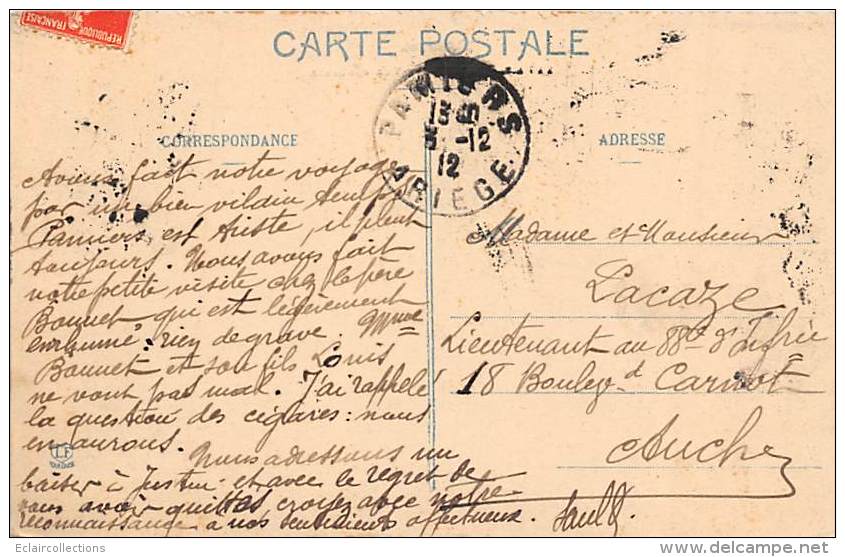 REPUBLIQUE FRANÇAISE
CARTE POSTALE
PAMIERS
5 -12
12
ARIEGE
CORRESPONDANCE
ADRESSE
Avons fait notre voyage
par un bien vilain temps
Pamiers est triste, il pleut
toujours. Nous avons fait
notre petite visite chez le père
Bonnet qui est légèrement
enrhumé: rien de grave. Mme
Bonnet et son fils Louis
ne vont pas mal. J'ai rappelé
la question des cigares: nous
en aurons.
Nous adressons un
baiser à Justin et avec le regret de
vous avoir quittés, croyez avec notre
reconnaissance à nos sentiments affectueux.
Madame et Monsieur
Lacaze
Lieutenant au 88e d'Infrie
18 Boulevd Carnot
Auch
Eclaircollections
http://eclaircollections.delcampe.net